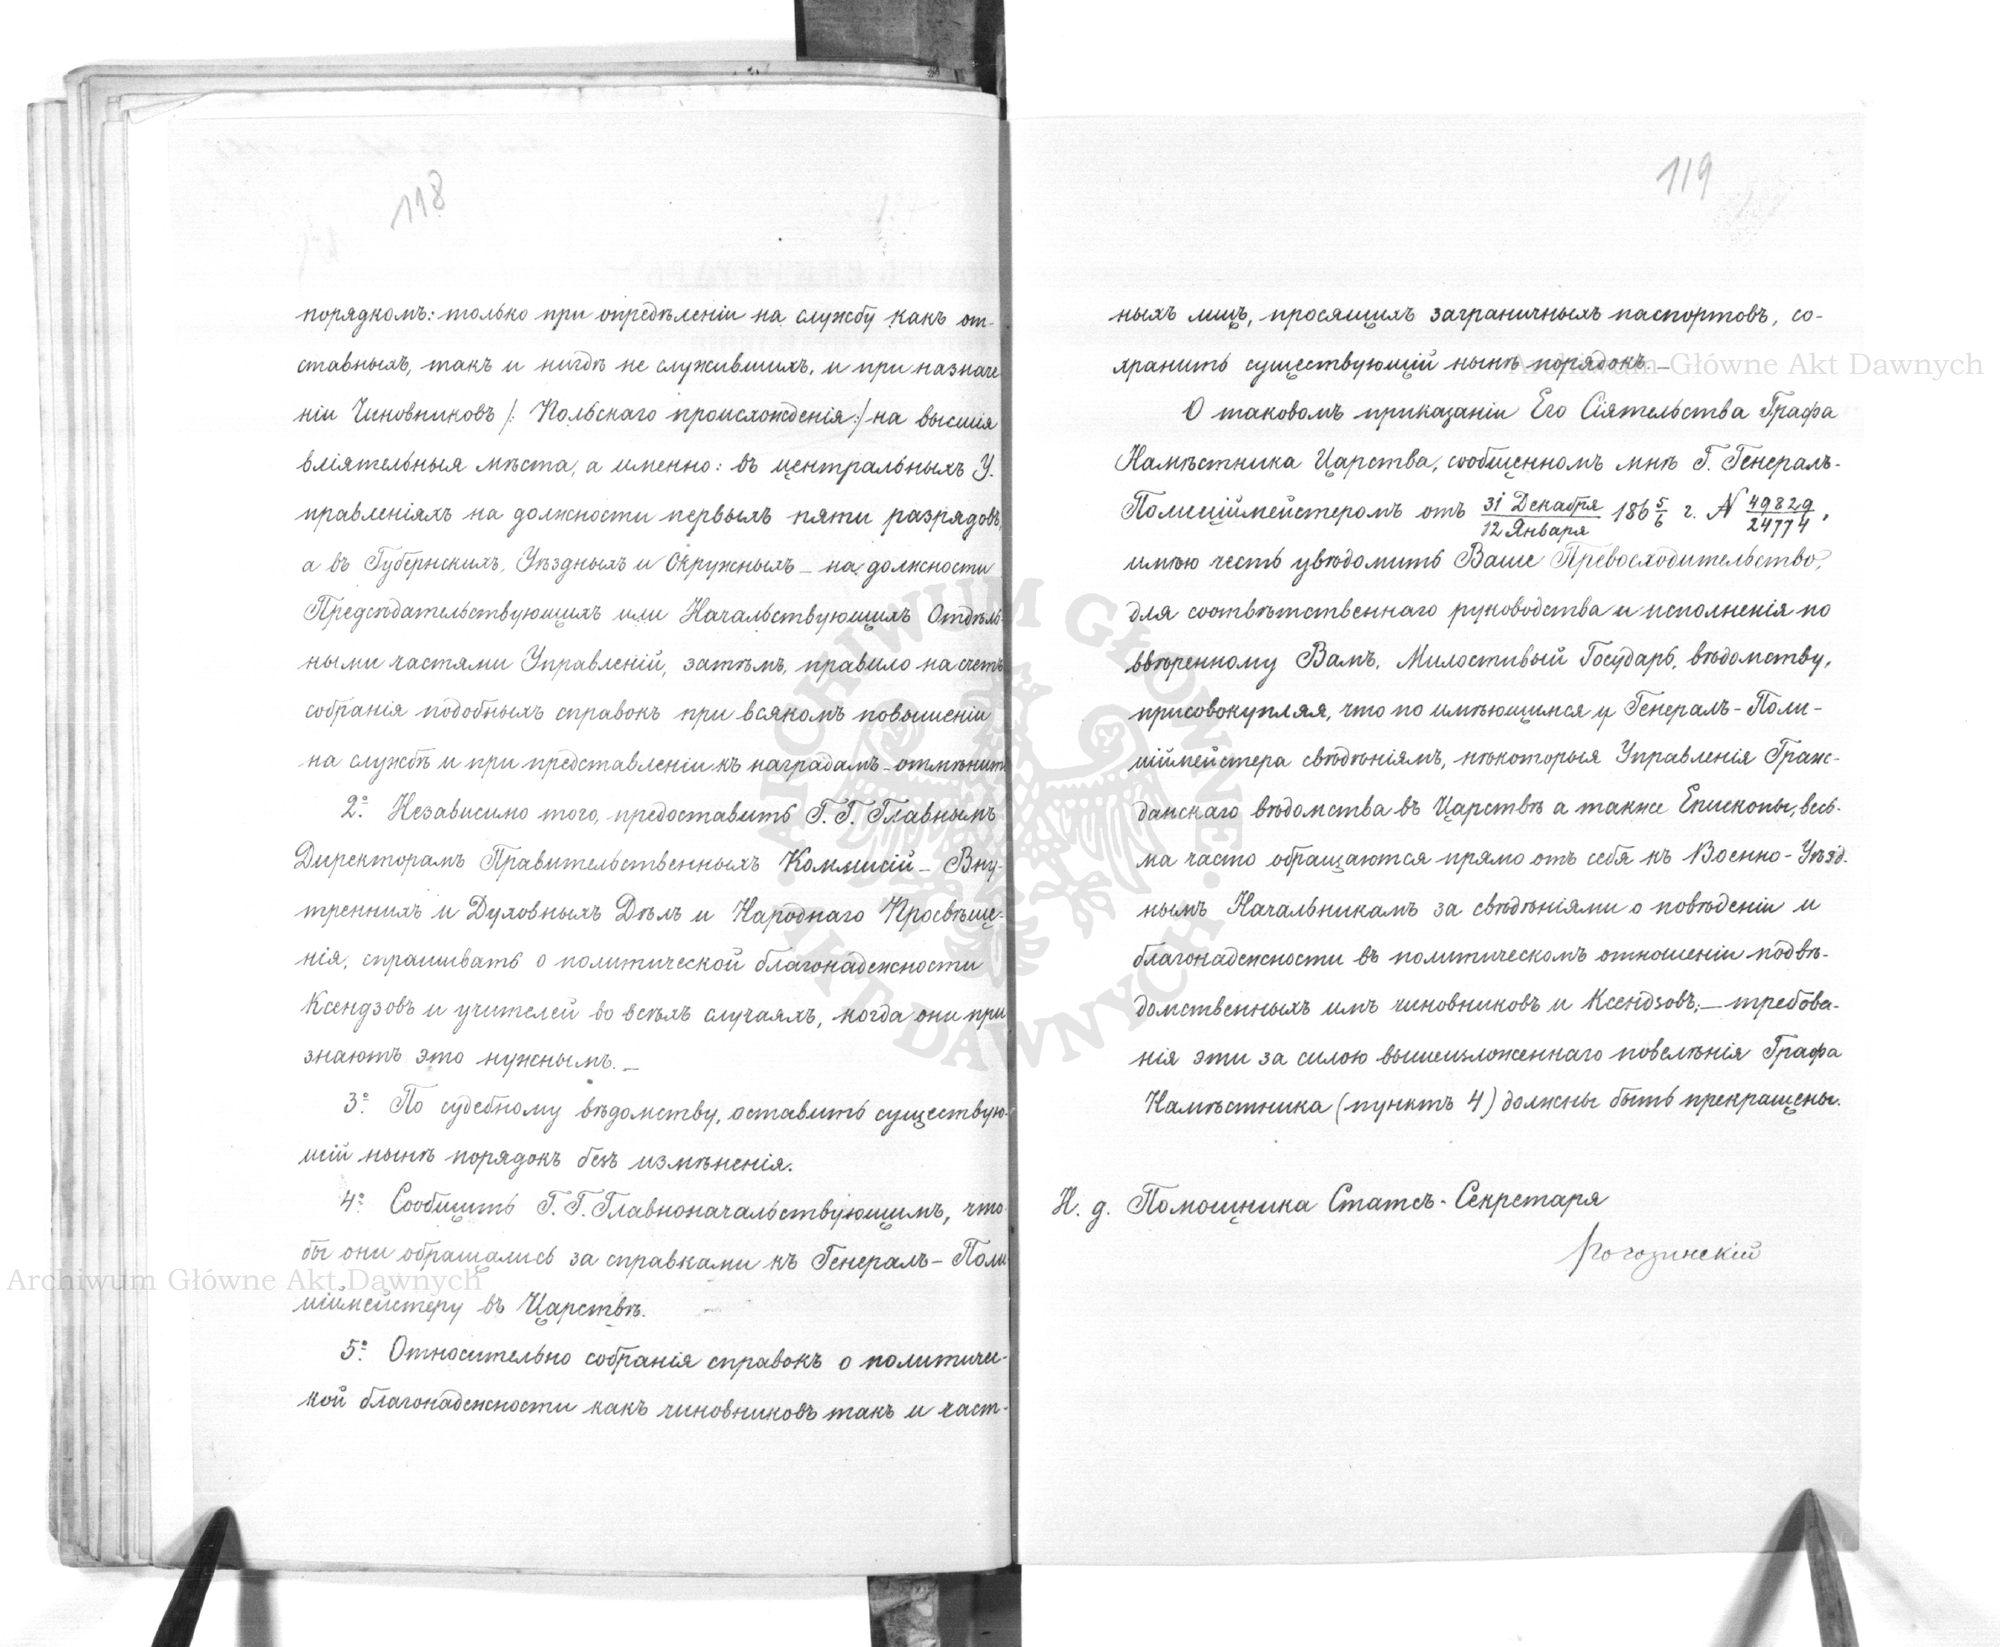 118
порядкомъ: только при опредѣленіи на службу какъ от-
ставныхъ, такъ и нигдѣ не служившихъ, и при назначе
ніи Чиновниковъ /: Польскаго происхожденія :/ на высшія
вліятельныя мѣста, а именно: въ центральныхъ У-
правленіяхъ на должности первыхъ пяти разрядовъ,
а въ Губернскихъ, Уѣздныхъ и Окружныхъ – на должности
Предсѣдательствующихъ или Начальствующихъ Отдѣль-
ными частями Управленій, затѣмъ, правило на счетъ
собранія подобныхъ справокъ при всякомъ повышеніи
на службѣ и при представленіи къ наградамъ – отмѣнить
2º. Независимо того, предоставить Г.Г. Главнымъ
Директорамъ Правительственныхъ Коммисій – Вну-
треннихъ и Духовныхъ Дѣлъ и Народнаго Просвѣще-
нія, спрашивать о политической благонадежности
Ксендзовъ и учителей во всѣхъ случаяхъ, когда они при
знаютъ это нужнымъ. –
3º. По судебному вѣдомству, оставить существую-
щій нынѣ порядокъ безъ измѣненія.
4º Сообщить Г.Г. Главноначальствующимъ, что-
бы они обращались за справками къ Генералъ – Поли
ціймейстеру въ Царствѣ.
5º. Относительно собранія справокъ о политиче-
кой благонадежности какъ чиновниковъ такъ и част-
119
ныхъ лицъ, просящихъ заграничныхъ паспортовъ, со-
хранить существующій нынѣ порядокъ. –
О таковомъ приказаніи Его Сіятельства Графа
Намѣстника Царства, сообщенномъ мнѣ Г. Генералъ-
Полиціймейстеромъ отъ 31 Декабря/12 Января 186 5/6 г. N 49829/24774,
имѣю честь увѣдомить Ваше Превосходительство,
для соотвѣтственнаго руководства и исполненія по
ввѣренному Вамъ, Милостивый Государь, вѣдомству,
присовокупляя, что по имѣющимся у Генералъ – Поли-
ціймейстера свѣдѣніямъ, нѣкоторыя Управленія Граж-
данскаго вѣдомства въ Царствѣ а также Епископы, весь-
ма часто обращаются прямо отъ себя къ Военно – Уѣзд-
нымъ Начальникамъ за свѣдѣніями о поведеніи и
благонадежности въ политическомъ отношеніи подвѣ-
домственныхъ имъ чиновниковъ и Ксендзовъ; – требова-
нія эти за силою вышеизложеннаго повелѣнія Графа
Намѣстника (пунктъ 4) должны быть прекращены.
И. д. Помощника Статсъ-Секретаря
Рогозинскій
Archiwum Główne Akt Dawnych
Archiwum Główne Akt Dawnych
ARCHIWUM GŁÓWNE · AKT DAWNYCH ·